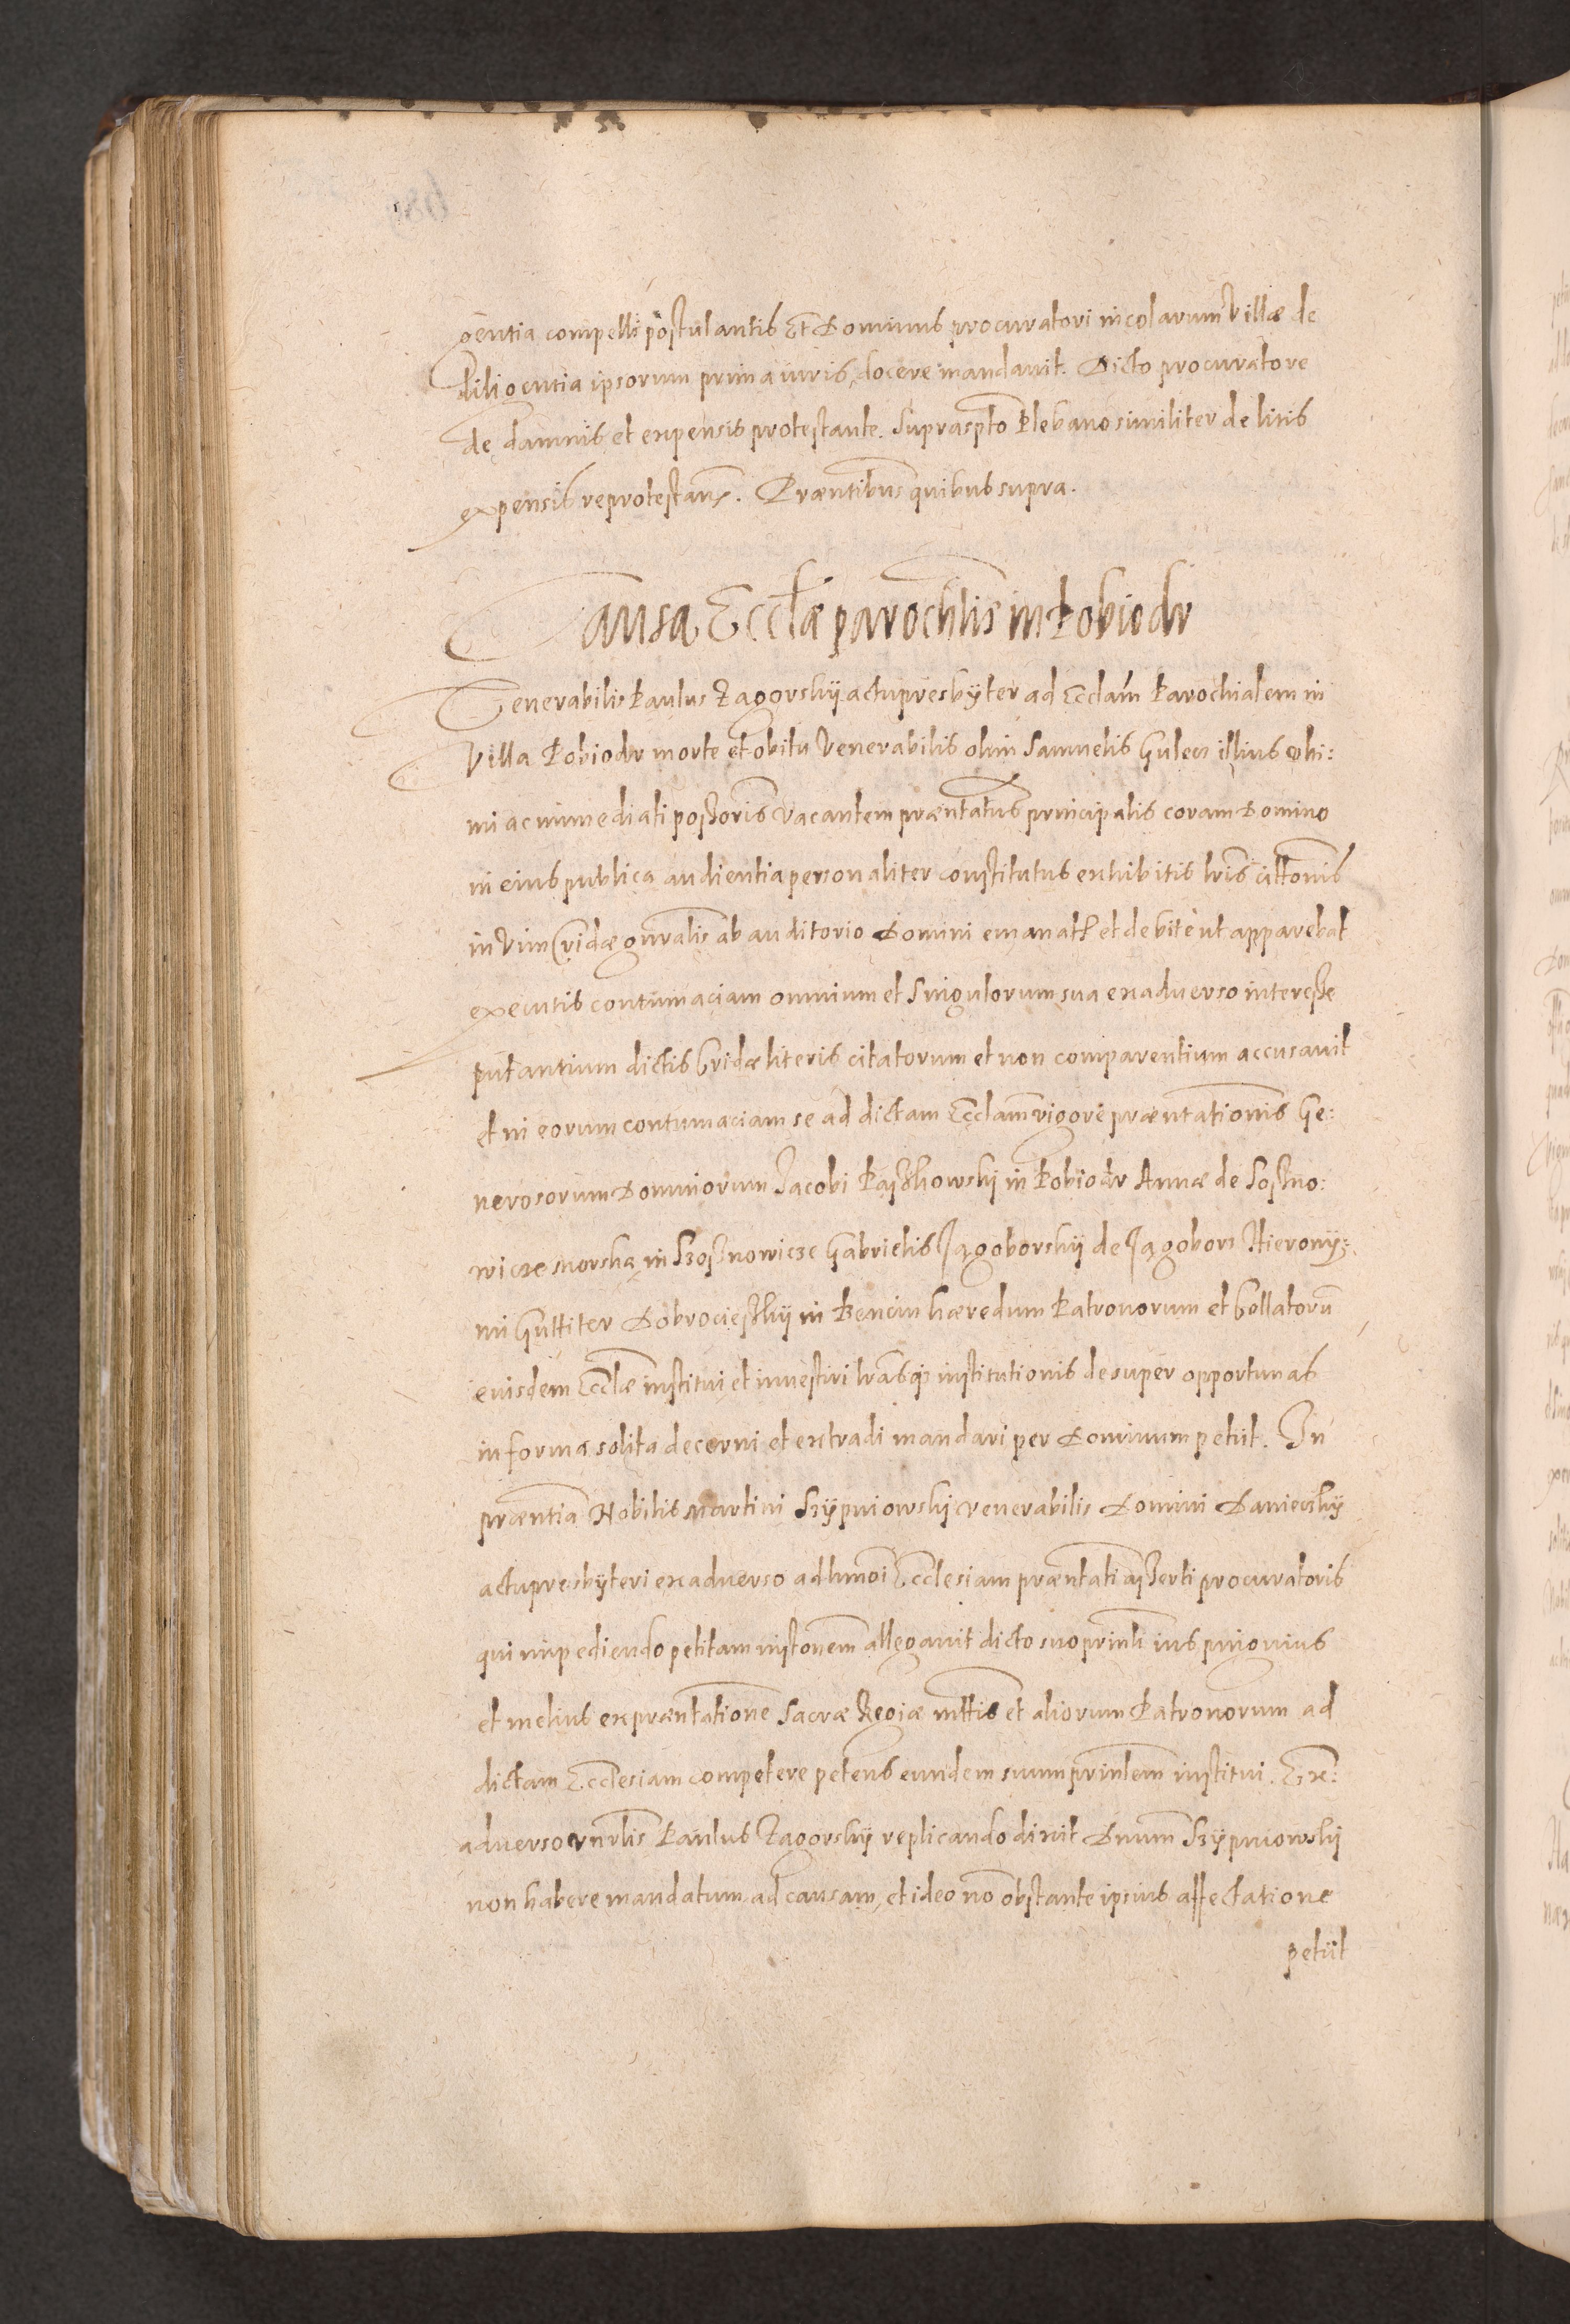 gentia compelli postulantis Et Dominus procuratori incolarum Villæ de
diligentia ipsorum prima iuris, docere mandavit. Dicto procuratore
de damnis et expensis protestante. Suprasp̃to Plebano similiter de litis
expensis reprotestañ. Præntibus quibus supra.
Causa Ecclæ parochlis in Pobiodr
Venerabilis Paulus Zagorskij actu presbyter ad Ecclam Parochialem in
Villa Pobiodr morte et obitu Venerabilis olim Samuelis Gulecz illius ulti:
mi ac immediati possoris vacantem præntatus principalis coram Domino
in eius publica audientia personaliter constitutus exhibitis lris cittonis
in vim Cridæ gnralis ab auditorio Domini emanatis et debite ut apparebat
executis contumaciam omnium et singulorum sua ex adverso interesse
putantium dictis Cridæ literis citatorum et non comparentium accusavit
et in eorum contumaciam se ad dictam Ecclam vigore præntationis Ge:
nerosorum Dominorum Jacobi Paszkowski in Pobiodr Annæ de Sosno:
wicze Morska in Szosnowicze Gabrielis Jagoborskij de Jagoborz Hierony:
mi Guttiter Dobrocieskij in Bencin hæredum Patronorum et Collatorũ
eiusdem Ecclæ institui et investiri lrasq̃ institutionis desuper opportunas
in forma solita decerni et extradi mandari per Dominum petiit. In
præntia Nobilis Martini Szypniowskij venerabilis Domini Danieczky
actu presbyteri ex adverso ad hmoi Ecclesiam præntati asserti procuratoris
qui impediendo petitam instonem allegavit dicto suo prinli ius pinguius
et melius ex præntatione Sacræ Regiæ mttis et aliorum Patronorum ad
dictam Ecclesiam competere petens eundem suum prinlem institui. Ex:
adverso vnrlis Paulus Zagorskij replicando dixit Dnum Szypniowskij
non habere mandatum ad causam, et ideo nõ obstante ipsius affectatione
petiit